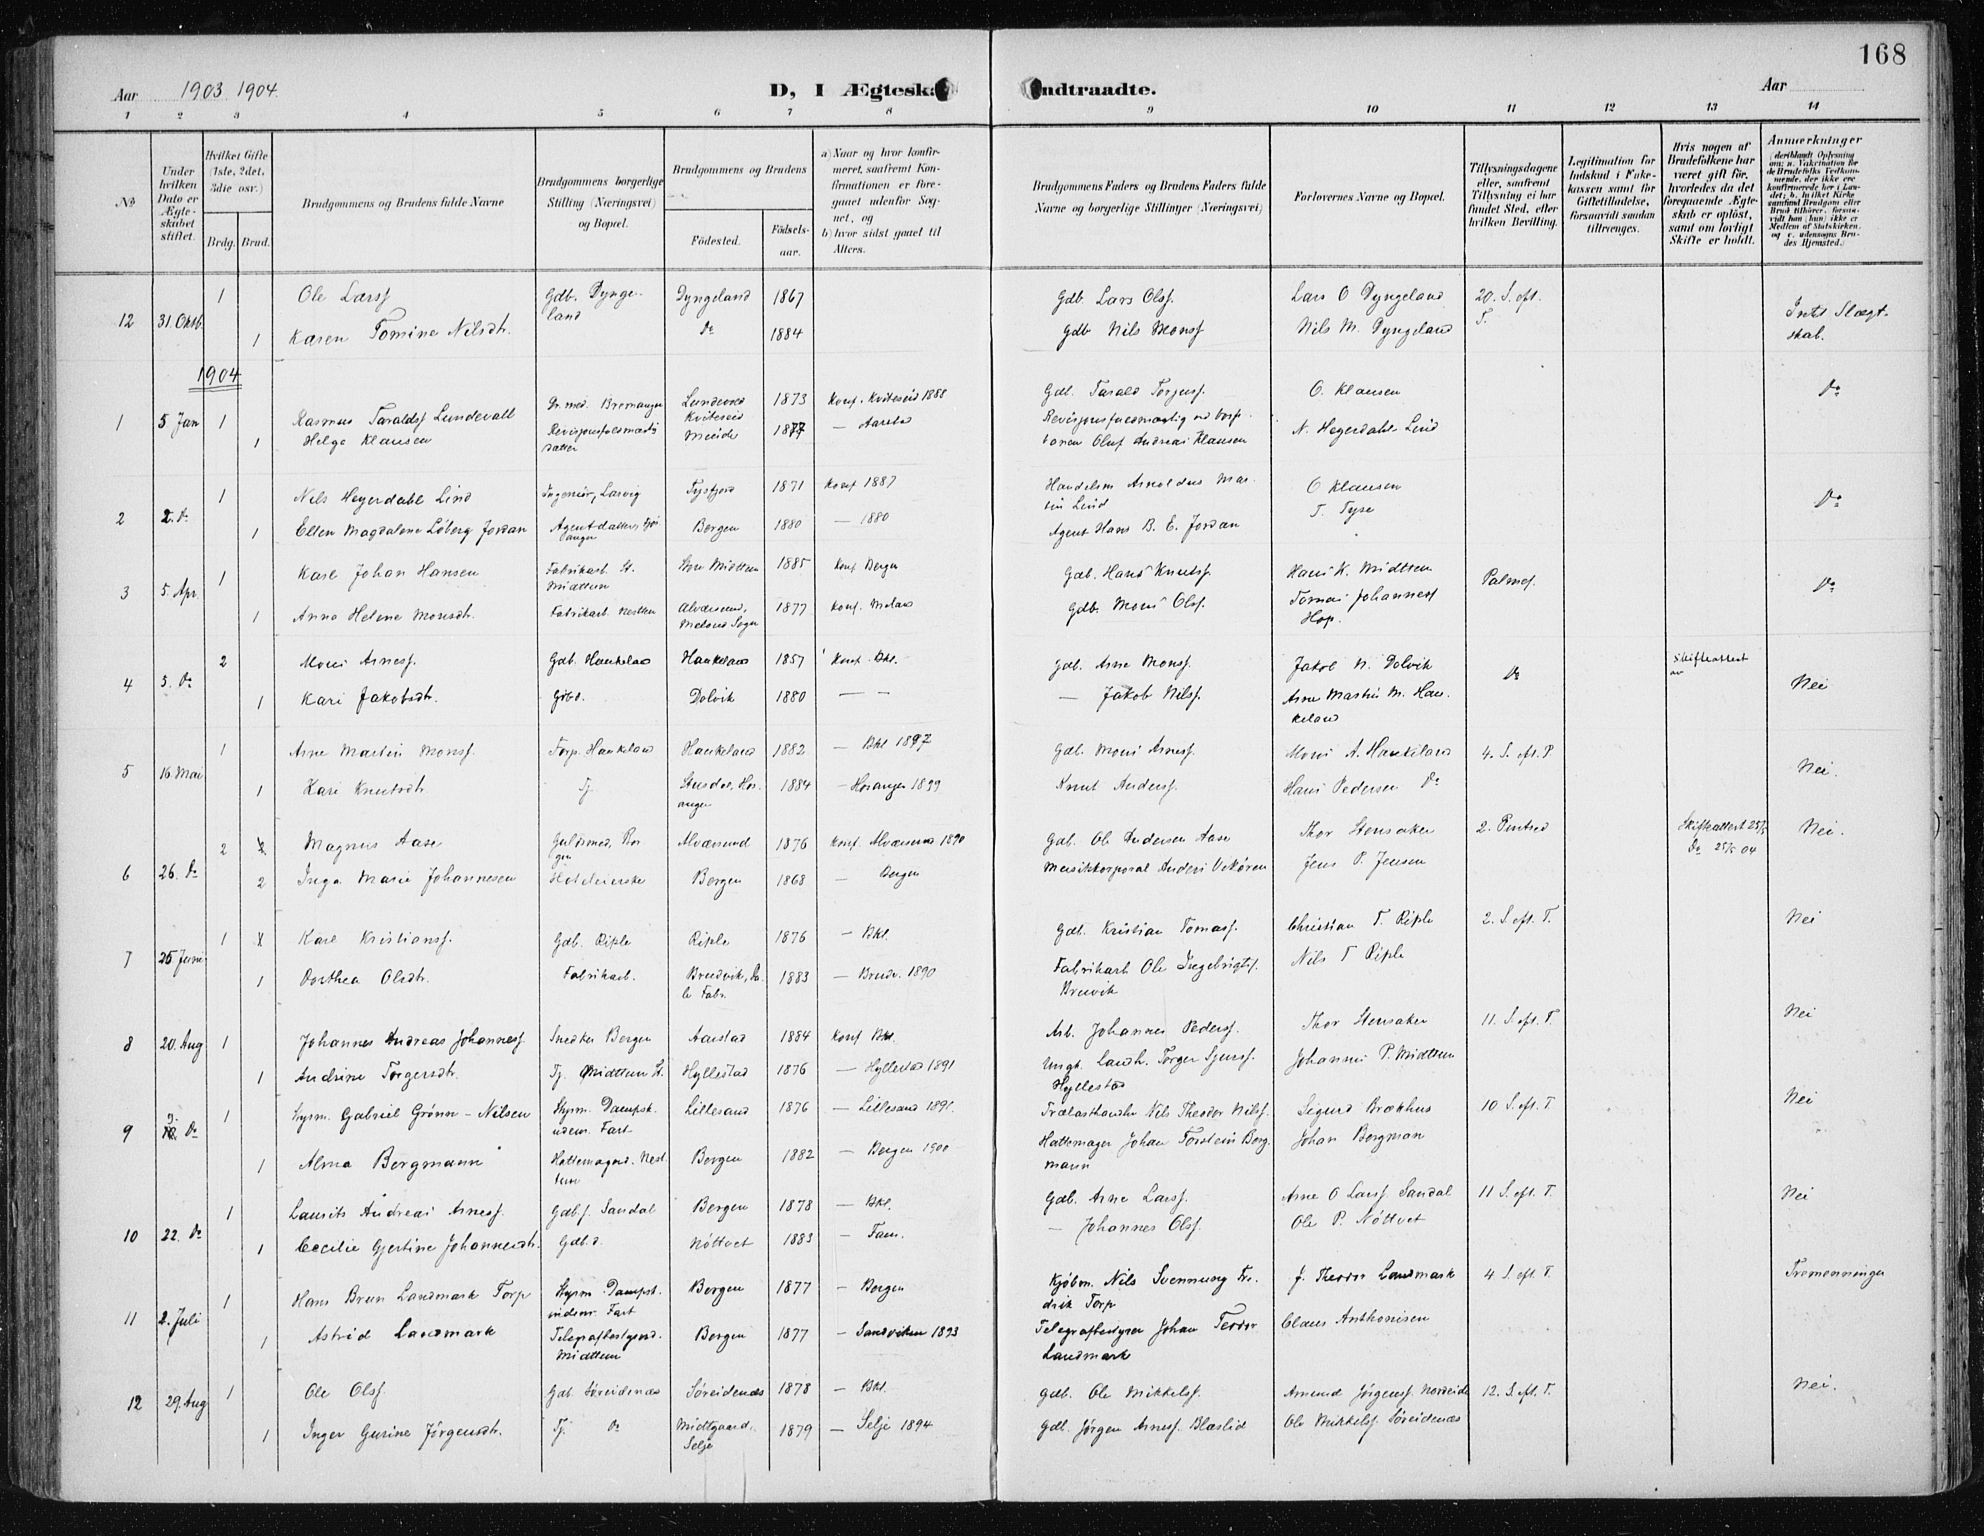 168
Aar 1903 1904.
D, I Ægtesk
ndtraadte.
Aar
1 2 3 4 5 6 7 8 9 10 11 12 13 14
No
Under hvilken Dato er Ægteskabet stiftet.
Hvilket Gifte (1ste, 2det, 3die osv.)
Brdg. Brud.
Brudgommens og Brudens fulde Navne
Brudgommens borgerlige Stilling (Næringsvei) og Bopæl.
Brudgommens og Brudens
Fødested.
Fødselsaar.
a) Naar og hvor konfirmeret, saafremt Konfirmationen er foregaaet udenfor Sognet, og
b) hvor sidst gaaet til Alters.
Brudgommens Faders og Brudens Faders fulde Navne og borgerlige Stillinger (Næringsvei)
Forlovernes Navne og Bopæl.
Tillysningsdagene eller, saafremt Tillysning ei har fundet Sted, efter hvilken Bevilling.
Legitimation for Indskud i Enkekassen samt for Giftetilladelse, forsaavidt saadan tiltrænges.
Hvis nogen af Brudefolkene har været gift før, hvorledes da det foregaaende Ægteskab er opløst, samt om lovligt Skifte er holdt.
Anmerkninger
(deriblandt Oplysning om: a. Vakcination for de Brudefolks Vedkommende, der ikke ere konfirmerede her i Landet; b. hvilket Kirkesamfund Brudgom eller Brud tilhører, forsaavidt han (hun) ikke er Medlem af Statskirken, og c. udensogns Brudes Hjemsted.)
12 31. Oktb. 1 Ole Larss. Gdb. Dyngeland Dyngeland 1867 Gdb. Lars Olss. Lars O Dyngeland 20. S. eft. T. Intet Slægtskab.
1 Karen Tomine Nilsdtr. Do 1884 Gdb Nils Monss Nils M. Dyngeland
1904
1 5 Jan 1 Rasmus Taraldss Lundevall Dr. med. Bremanger Kviteseid 1873 Konf. Kviteseid 1888 Gdb. Tarald Torjuss. O. Klausen Do
1 Helga Klausen datter 1877 — Olaf Andreas Klausen N. Heyerdahl Lind
2 2. Do 1 Nils Heyerdahl Lind Ingeniør, Larvig Tysfjord 1871 Konf 1887 Handelsm Arnoldus Martin Lind O Klausen Do
1 Ellen Magdalene Löberg Jordan Agentdatter, Bergen 1880 — 1880 Agent Hans B. E. Jordan T. Tyse
3 5. Apr. 1 Karl Johan Hansen Fabrikarb. St. Midttun Store Midttun 1885 Konf Bergen Gdb. Hans Knutss. Hans K. Midttun Palmes. Do
1 Anna Helene Monsdtr. Fabrikarb. Nesttun Alversund, Melands Sogn 1877 Konf. Meland Gdb. Mons Olss. Tomas Johanness Hop.
4 5. Do 2 Mons Arness. Gdb. Haukeland Haukeland 1857 Konf. Bkl. Gdb. Arne Monss. Jakob N. Dolvik Do Skifteattest Nei
1 Kari Jakobsdtr. Gdbd. Dolvik 1880 — — — Jakob Nilss. Arne Martin M. Haukeland
5 16 Mai 1 Arne Martin Monss. Forp. Haukeland Haukeland 1882 — Bkl 1897 Gdb. Mons Arness. Mons A. Haukeland 4. S. eft. P Nei.
1 Kari Knutsdtr. Tj. Hosanger 1884 — Hosanger 1899 Knut Anderss. Hans Pedersen Do
6 26. Do 2 Magnus Aase Guldsmed, Bergen Alversund 1876 Konf Alversund 1890 Gdb. Ole Andersen Aase Thor Stensaker 2. Pintsed Skifteattest 25/5 Do 25/5 04 Nei.
2 Inga Marie Johannesen Hotelierske Bergen 1868 — Bergen Musikkorporal Anders Vikøren Jens P. Jensen
7 25 Juni 1 Karl Kristianss. Gdb. Riple Riple 1876 — Bkl. Gdb. Kristian Tomass. Christian T. Riple 2. S. eft. T. Nei
1 Dorthea Olsdtr. Fabrikarb. Bruvik, Dale Fabr. 1883 — Bruv. 1890 Fabrikarb Ole Ingebrigts. Bruvik Nils T Riple
8 20. Aug 1 Johannes Andreas Johanness Snedker Bergen Aarstad 1884 Konf Bkl. Arb. Johannes Pederss. Thor Stensaker 11. S. eft. T. Nei
1 Andrine Torgersdtr. Tj. Midttun St. Hyllestad 1876 — Hyllestad 1891 Ungk. Landh. Torger Sjurss. Hyllestad Johannes P. Midttun
9 Do 1 Styrm. Gabriel Grönn-Nilsen Styrm. Dampsk. udenr. Fart Lillesand 1876 — Lillesand 1891. Trælasthandler Nils Theodor Nilss. Sigurd Brækhus 10 S. eft. T. Nei
1 Alma Bergmann Hattemagerd. Nesttun Bergen 1882 — Bergen 1900 Hattemager Johan Torstein Bergmann Johan Bergman
10 22. Do 1 Laurits Andreas Arness. Gdb.s. Sandal Bergen 1878 — Bkl. Gdb. Arne Larss. Arne O Larss Sandal 11 S. eft. T. Nei
1 Cecilie Gjertine Johannesdtr. Gdb.d. Nöttvet 1883 — Fane. — Johannes Olss. Ole P. Nöttvet
11 2. Juli 1 Hans Brun Landmark Torp Styrm. Dampsk. indenr. Fart Bergen 1877 — Bergen Kjöbm. Nils Svennung Fredrik Torp J. Theodor Landmark 4 S. eft. T. Tremenninger
1 Astrid Landmark Telegrafbestyrerd. Midttun Bergen 1877 — Sandviken 1893 Telegrafbestyrer Johan Teodor Landmark Claus Anthonisen
12 29. Aug 1 Ole Olss. Gdb. Söreidenæs Söreidenæs 1878 — Bkl. Gdb. Ole Mikkelss. Amund Jörgenss. Nordeide 12. S. eft. T. Nei.
1 Inger Gurine Jörgensdtr. Tj. Do Midtgaard, Selje 1879 — Selje 1894 Gdb. Jörgen Arness. Blaalid Ole Mikkelss. Söreidenæs